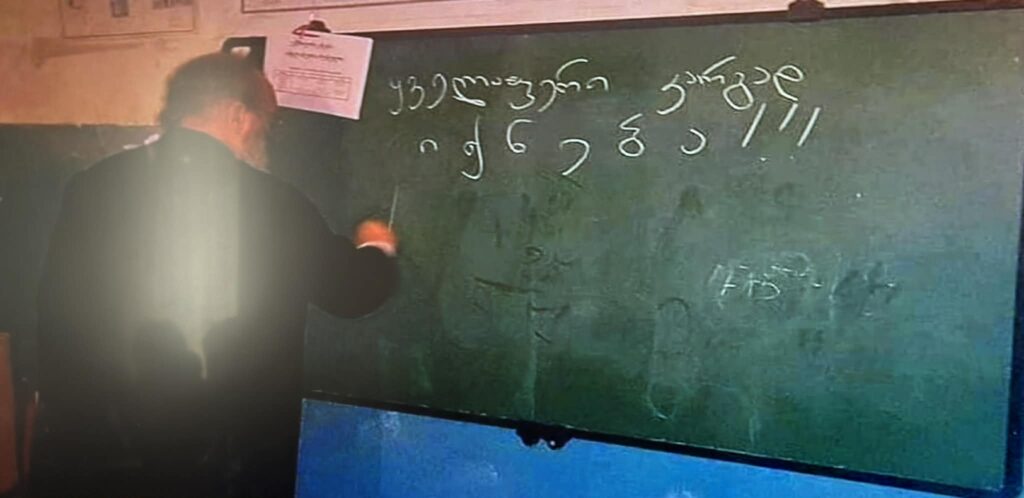 ყველაფერი კარგად
იქნება!!!